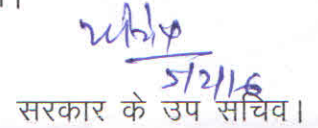 5/2/16
सरकार के उप सचिव।